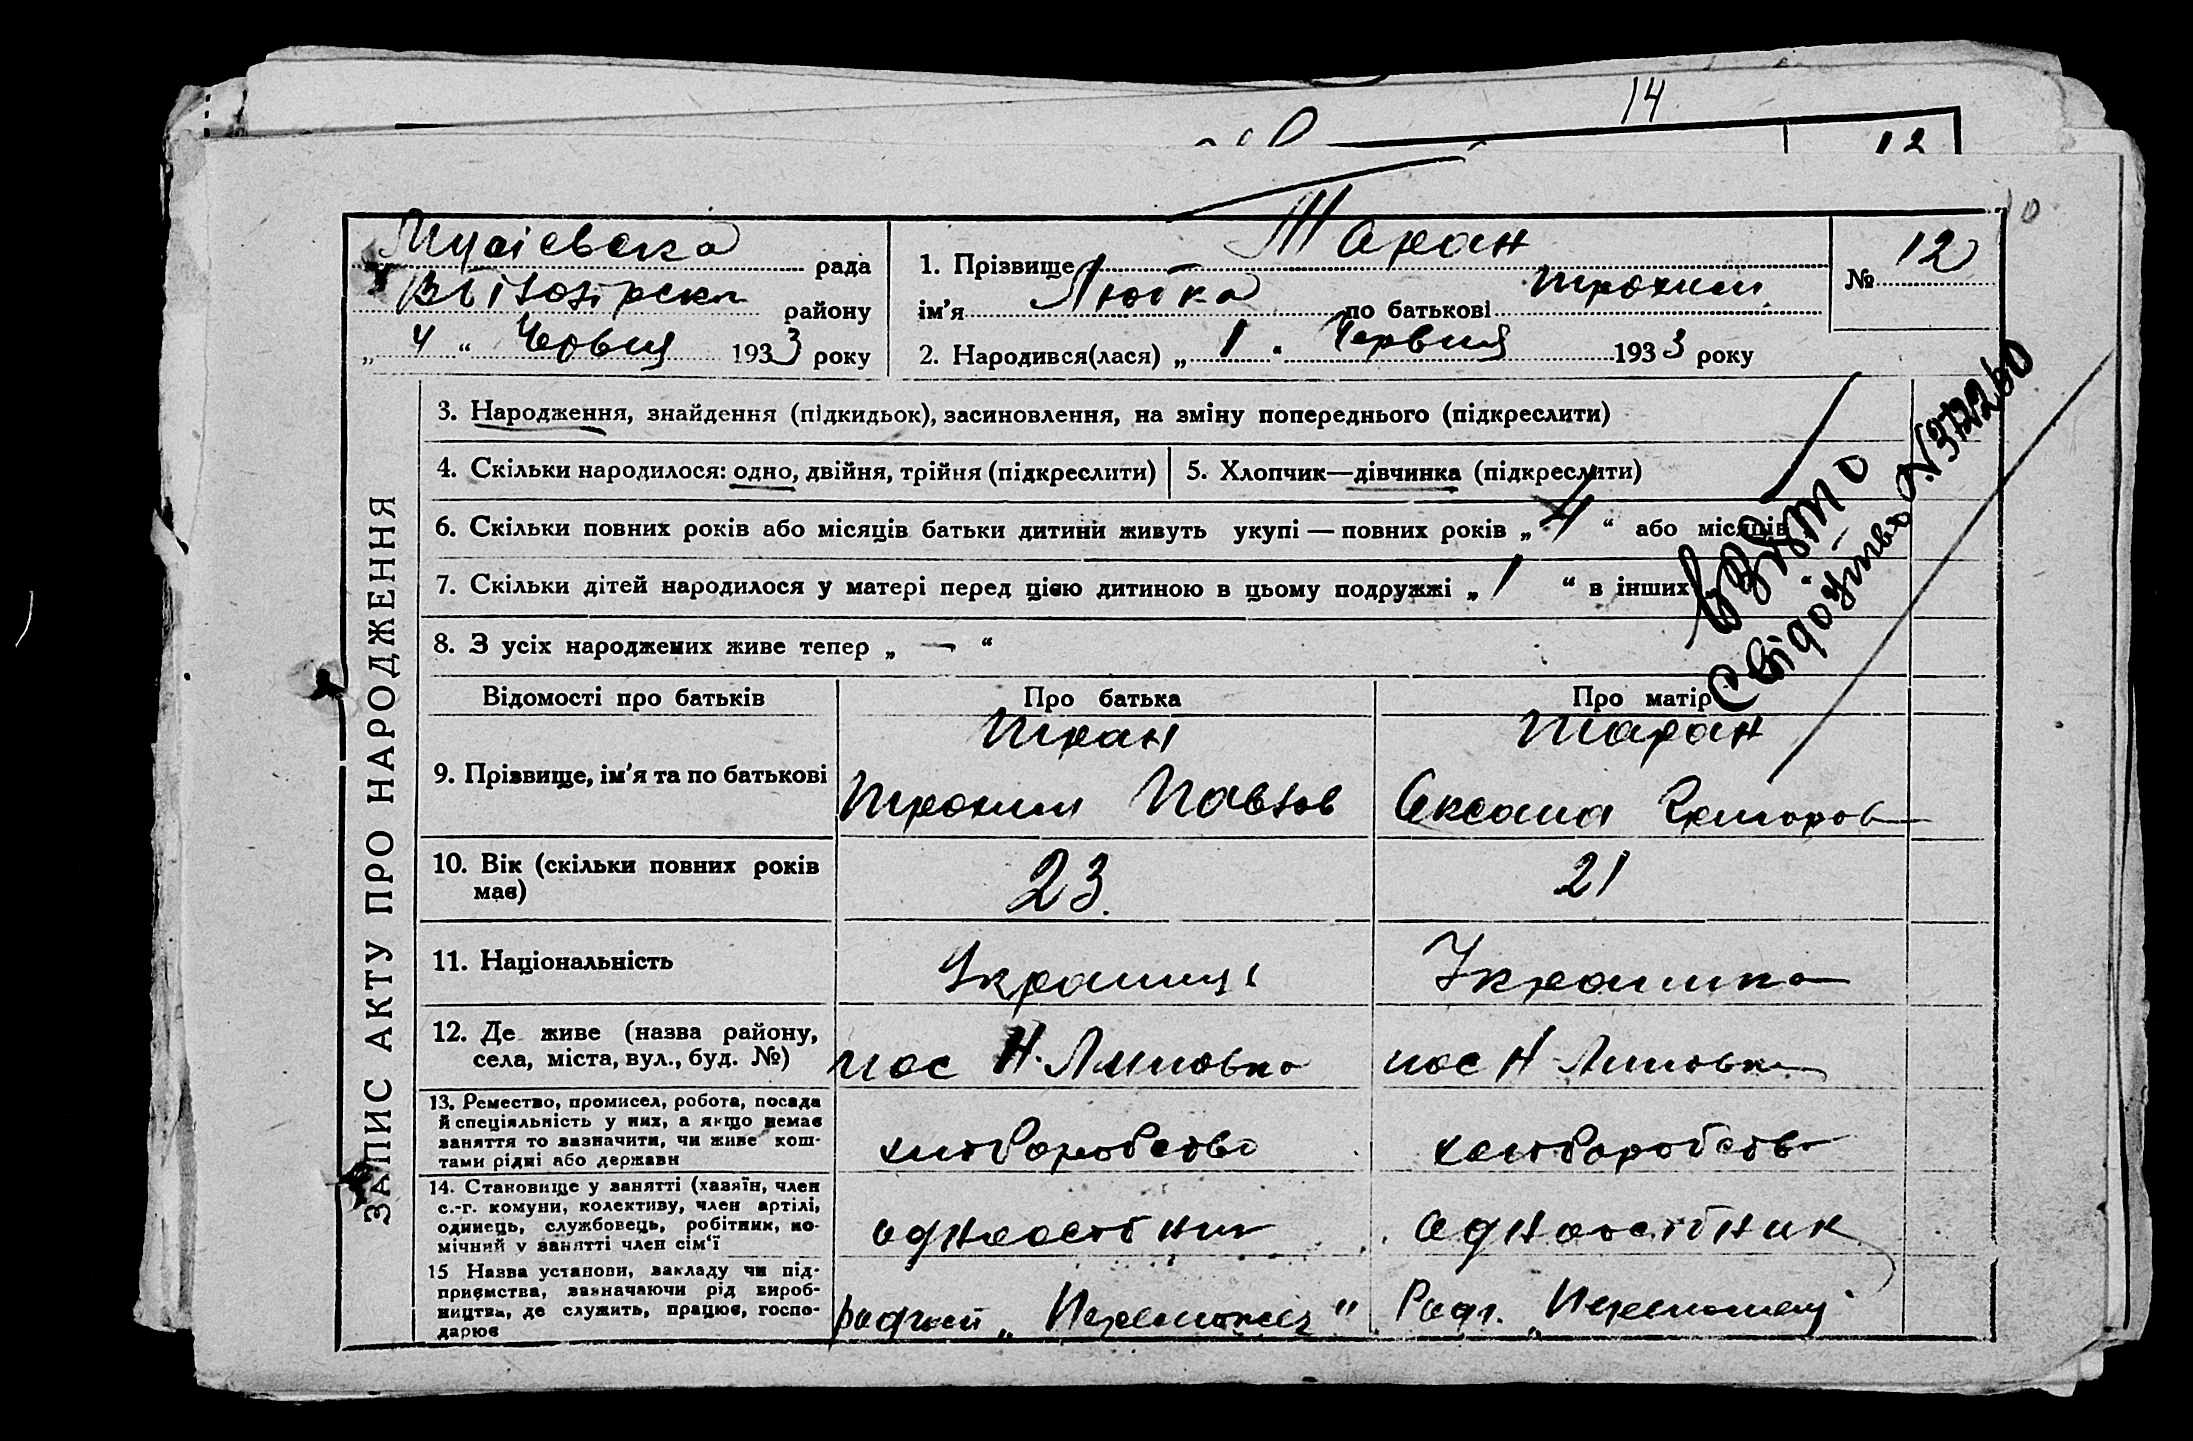 14
12
Мусієвська рада
району
„ 4 “ Червця 1933 року
1. Прізвище Таран
ім’я Любка по батькові Трохим.
2. Народився(лася) „ 1 “ Червця 1933 року
№ 12
ЗАПИС АКТУ ПРО НАРОДЖЕННЯ
3. Народження, знайдення (підкидьок), засиновлення, на зміну попереднього (підкреслити)
4. Скільки народилося: одно, двійня, трійня (підкреслити)
5. Хлопчик—дівчинка (підкреслити)
6. Скільки повних років або місяців батьки дитини живуть укупі — повних років „ 4 “ або місяців
7. Скільки дітей народилося у матері перед цією дитиною в цьому подружжі „ 1 “ в інших “
8. З усіх народжених живе тепер „ — “
взято
Свідоцтво №
Відомості про батьків
Про батька
Про матір
9. Прізвище, ім’я та по батькові
Тран
Трохим Павлов
Таран
Оксана Григоров
10. Вік (скільки повних років
має)
23.
21
11. Національність
Українць
Українка
12. Де живе (назва району,
села, міста, вул., буд. №)
пос Н. Липовка
пос Н Липовка
13. Ремество, промисел, робота, посада
й спеціяльність у них, а якщо немає
заняття то зазначити, чи живе кош-
тами рідні або держави
хліборобство
хліборобство
14. Становище у занятті (хазяїн, член
с.-г. комуни, колективу, член артілі,
одинець, службовець, робітник, по-
мічний у занятті член сім‘ї
одноосібник
одноосібник
15 Назва установи, закладу чи під-
приємства, зазначаючи рід вироб-
ництва, де служить, працює, госпо-
дарює
„ Переможец “
„ Переможец